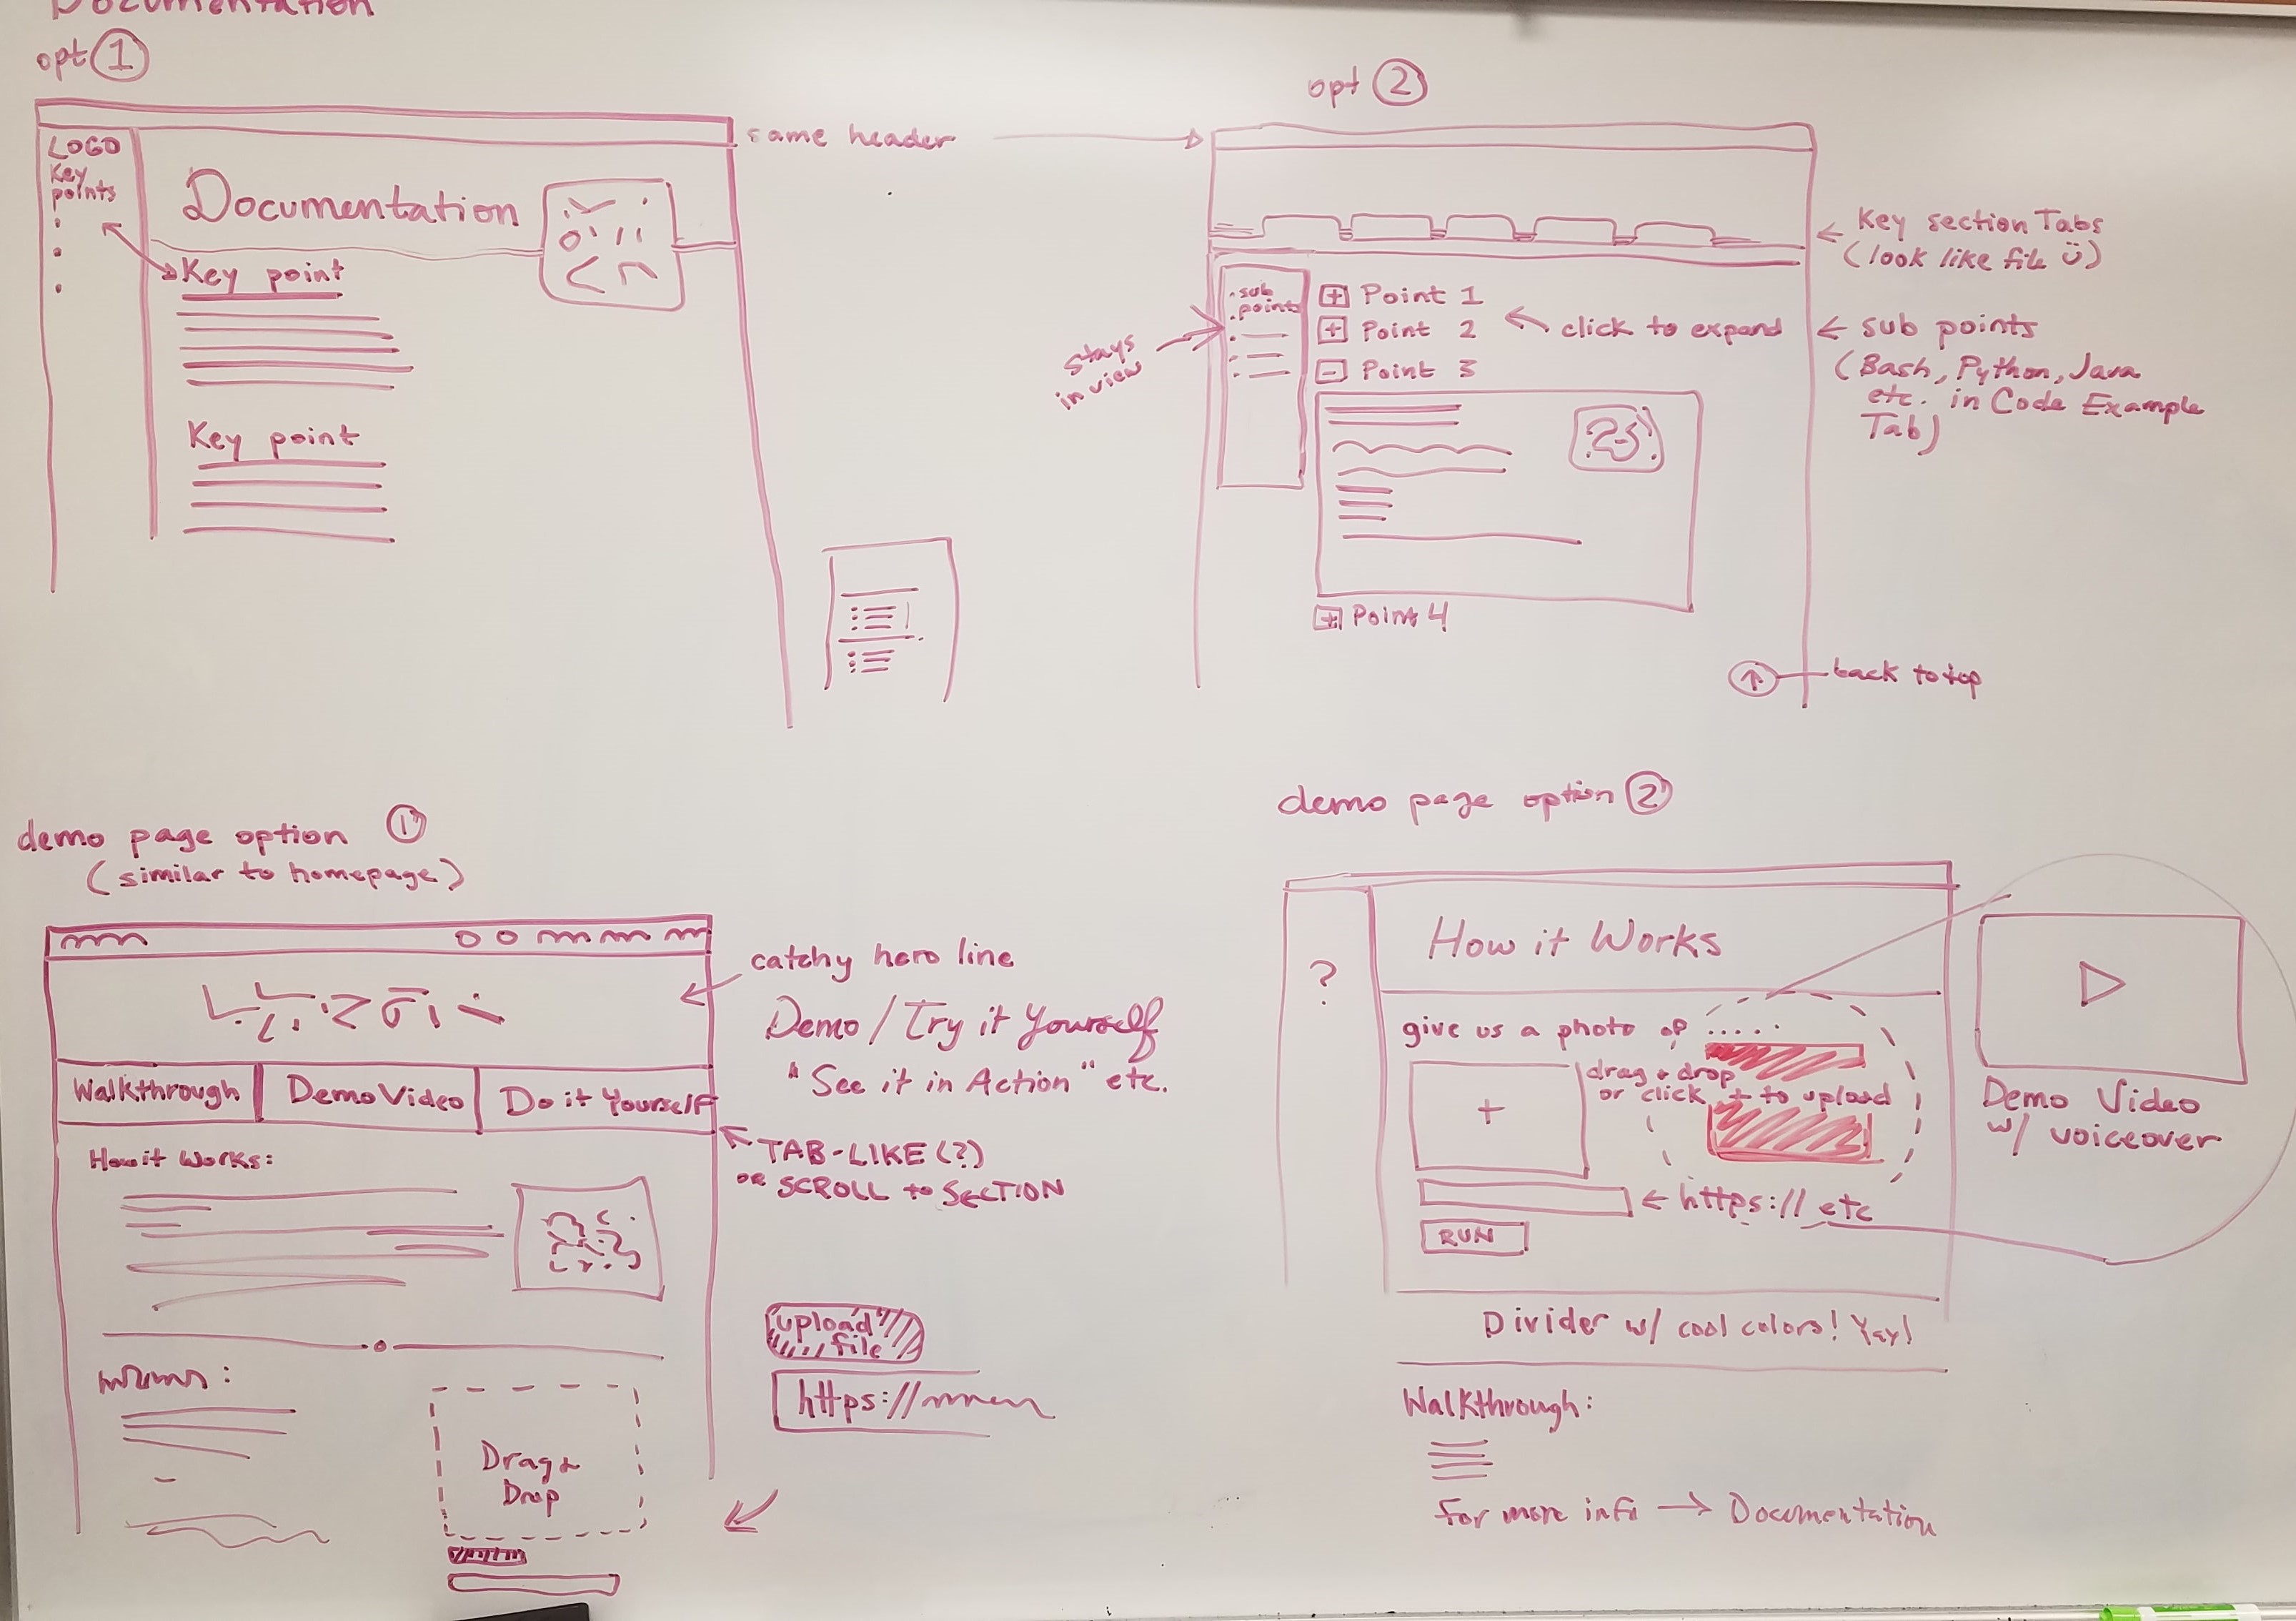 Documentation
opt 1
LOGO
Key
points
Documentation
Key point
Key point
same header
opt 2
Key section Tabs
(look like file Ü)
stays
in view
.sub
.points
+ Point 1
+ Point 2
- Point 3
click to expand
sub points
(Bash, Python, Java
etc. in Code Example
Tab)
+ Point 4
↑
back to top
demo page option 1
(similar to homepage)
Walkthrough
Demo Video
Do it Yourself
How it Works:
Drag &
Drop
catchy hero line
Demo / Try it Yourself
"See it in Action" etc.
TAB-LIKE (?)
or SCROLL to SECTION
upload
file
https://
demo page option 2
?
How it Works
give us a photo of .....
+
drag & drop
or click + to upload
https:// etc
RUN
Demo Video
w/ voiceover
Divider w/ cool colors! Yay!
Walkthrough:
for more info → Documentation